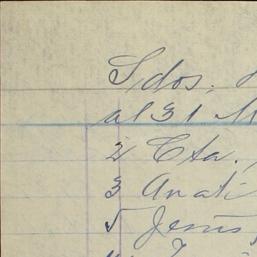 Sdos.
al 31 M
2 Cta.
3 Anati
5 Jesús